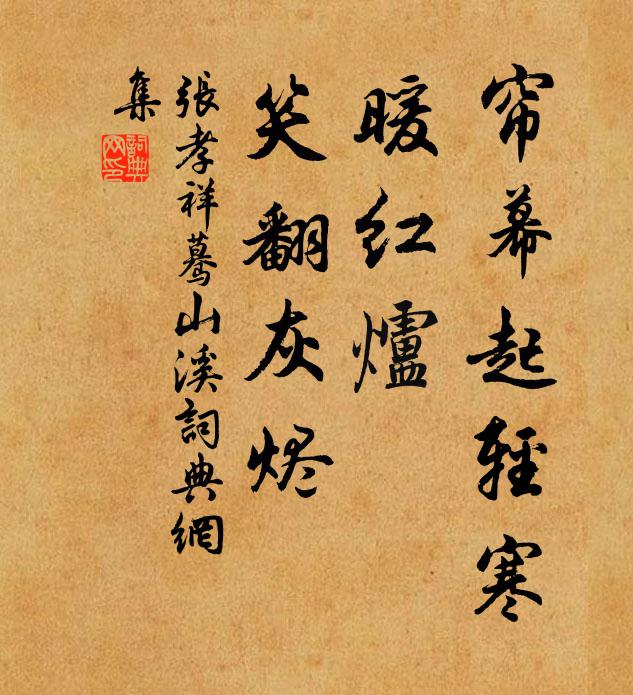 帘幕起輕寒
暖红爐
笑翻灰烬
張孝祥驀山溪詞典網
集
詞典
网印